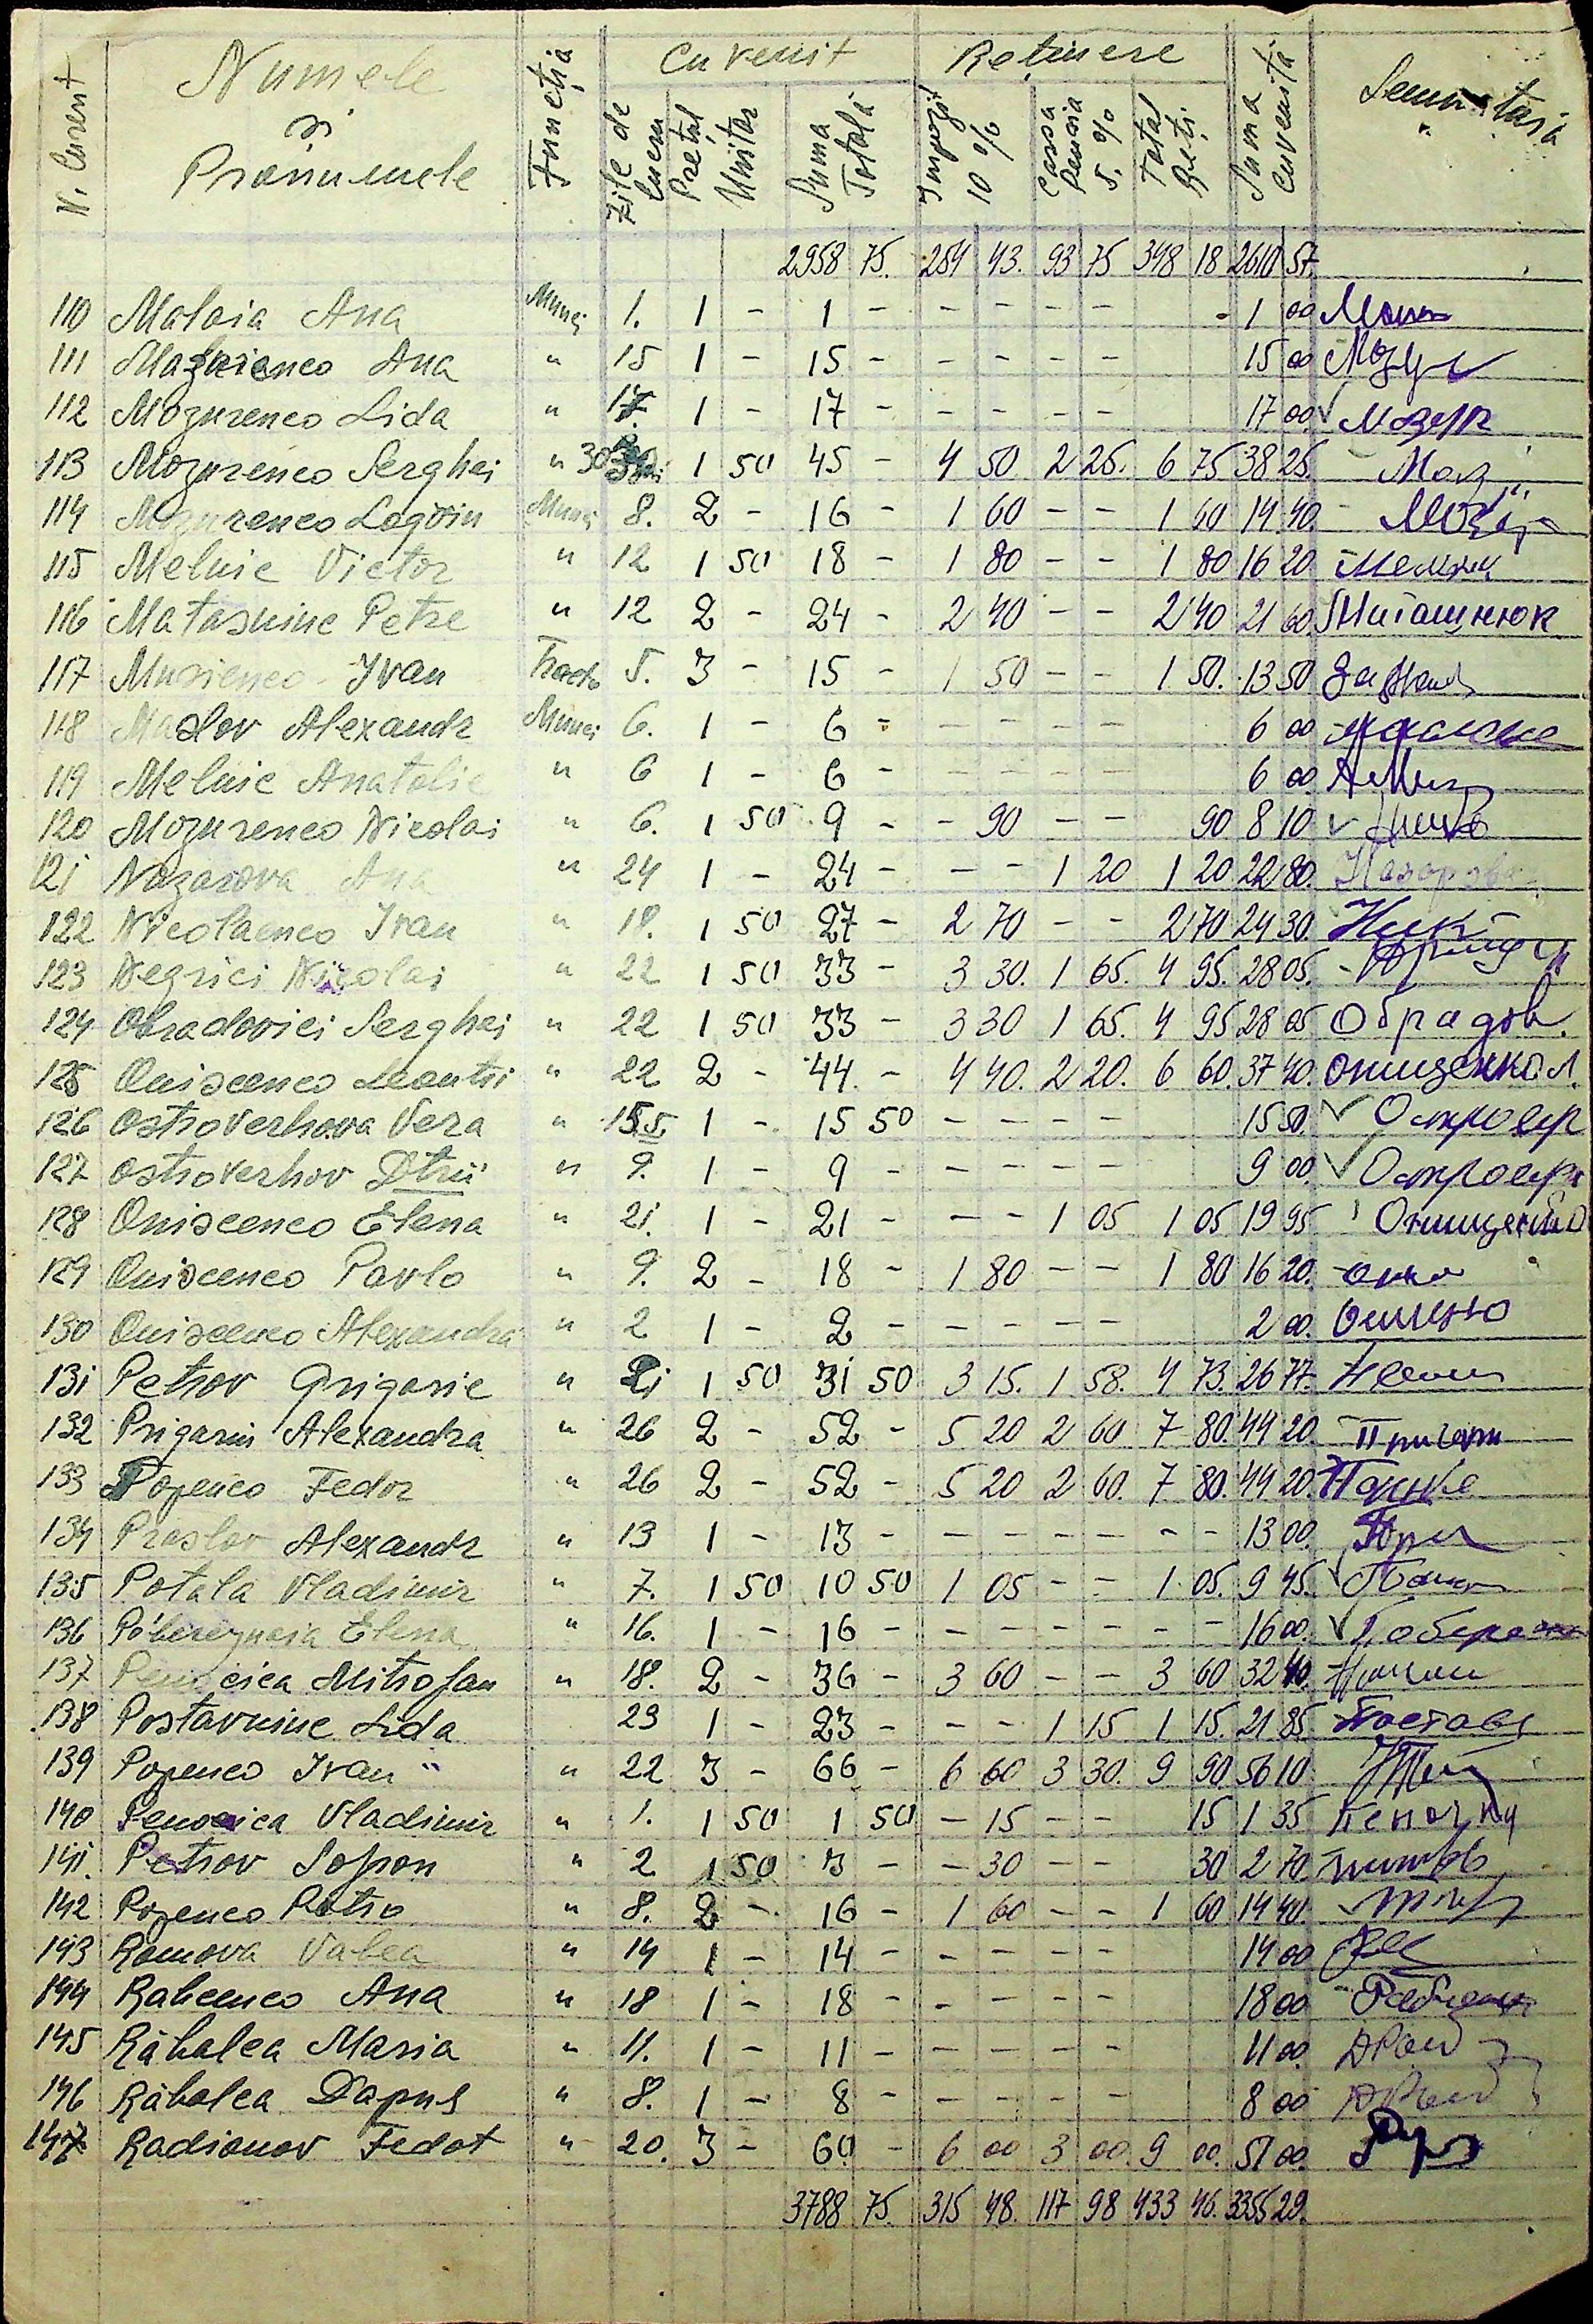 Nr. Curent Numele și Pronumele Funcția Cuvenit Reținere Suma Cuvenită Semnătura
Zile de lucru Prețul Unitar Suma Totală Impozit 10 % Cassa Pensia 5 % Total Reți.
2958 75. 254 43. 93 75 348 18 2610 57.
110 Malaia Ana Munci 1. 1 - 1 - - - - - 1 00
111 Mazurenco Ana " 15 1 - 15 - - - - - 15 00
112 Mozurenco Lida " 17. 1 - 17 - - - - - 17 00
113 Mozurenco Serghei " 30 1 50 45 - 4 50 2 25. 6 75 38 25. Моз
114 Mozurenco Logvin Munci 8. 2 - 16 - 1 60 - - 1 60 14 40.
115 Melnic Victor " 12 1 50 18 - 1 80 - - 1 80 16 20
116 Matasniuc Petre " 12 2 - 24 - 2 40 - - 2 40 21 60
117 Musienco Ivan 5. 3 - 15 - 1 50 - - 1 50. 13 50
118 Maslov Alexandr Munci 6. 1 - 6 - - - - - 6 00
119 Melnic Anatolie " 6 1 - 6 - - - - - 6 00
120 Mozurenco Nicolai " 6. 1 50 9 - - 90 - - 90 8 10
121 Nazarova Ana " 24 1 - 24 - - - 1 20 1 20 22 80. Назарова
122 Nicolaenco Ivan " 18. 1 50 27 - 2 70 - - 2 70 24 30. Ник
123 Negrici Nicolai " 22 1 50 33 - 3 30. 1 65. 4 95. 28 05.
124 Obradovici Serghei " 22 1 50 33 - 3 30 1 65. 4 95 28 05 Обрадов.
125 Oniscenco Leontii " 22 2 - 44. - 4 40. 2 20. 6 60. 37 40. Онищенко Л.
126 Ostroverhova Vera " 15.5. 1 - 15 50 - - - - 15 50.
127 Ostroverhov Dtrii " 9. 1 - 9 - - - - - 9 00.
128 Oniscenco Elena " 21. 1 - 21 - - - 1 05 1 05 19 95
129 Oniscenco Pavlo " 9. 2 - 18 - 1 80 - - 1 80 16 20.
130 Oniscenco Alexandra " 2 1 - 2 - - - - - 2 00.
131 Petrov Grigorie " 21 1 50 31 50 3 15. 1 58. 4 73. 26 77.
132 Prigarin Alexandra " 26 2 - 52 - 5 20 2 60 7 80. 44 20.
133 Popenco Fedor " 26 2 - 52 - 5 20 2 60. 7 80. 44 20
134 Praslov Alexandr " 13 1 - 13 - - - - - - - 13 00.
135 Potula Vladimir " 7. 1 50 10 50 1 05 - - 1 05. 9 45.
136 Pobereznaia Elena " 16. 1 - 16 - - - - - - - 16 00.
137 Penocica Mitrofan " 18. 2 - 36 - 3 60 - - 3 60 32 40.
138 Postavniuc Lida 23 1 - 23 - - - 1 15 1 15. 21 85
139 Popenco Ivan " 22 3 - 66 - 6 60 3 30. 9 90 56 10
140 Penocica Vladimir " 1. 1 50 1 50 - 15 - - 15 1 35 Пеночка
141. Petrov Sofron " 2 1 50 3 - - 30 - - 30 2 70.
142 Popenco Petro " 8. 2 - 16 - 1 60 - - 1 60 14 40.
143 Romova Valea " 14 1 - 14 - - - - - 14 00
144 Rabcenco Ana " 18 1 - 18 - - - - - 18 00
145 Răbalca Maria " 11. 1 - 11 - - - - - 11 00
146 Răbalca Dapus " 8. 1 - 8 - - - - - 8 00
147 Radionov Fedot " 20. 3 - 60 - 6 00 3 00. 9 00. 51 00.
3788 75. 315 48. 117 98 433 46. 3355 29.